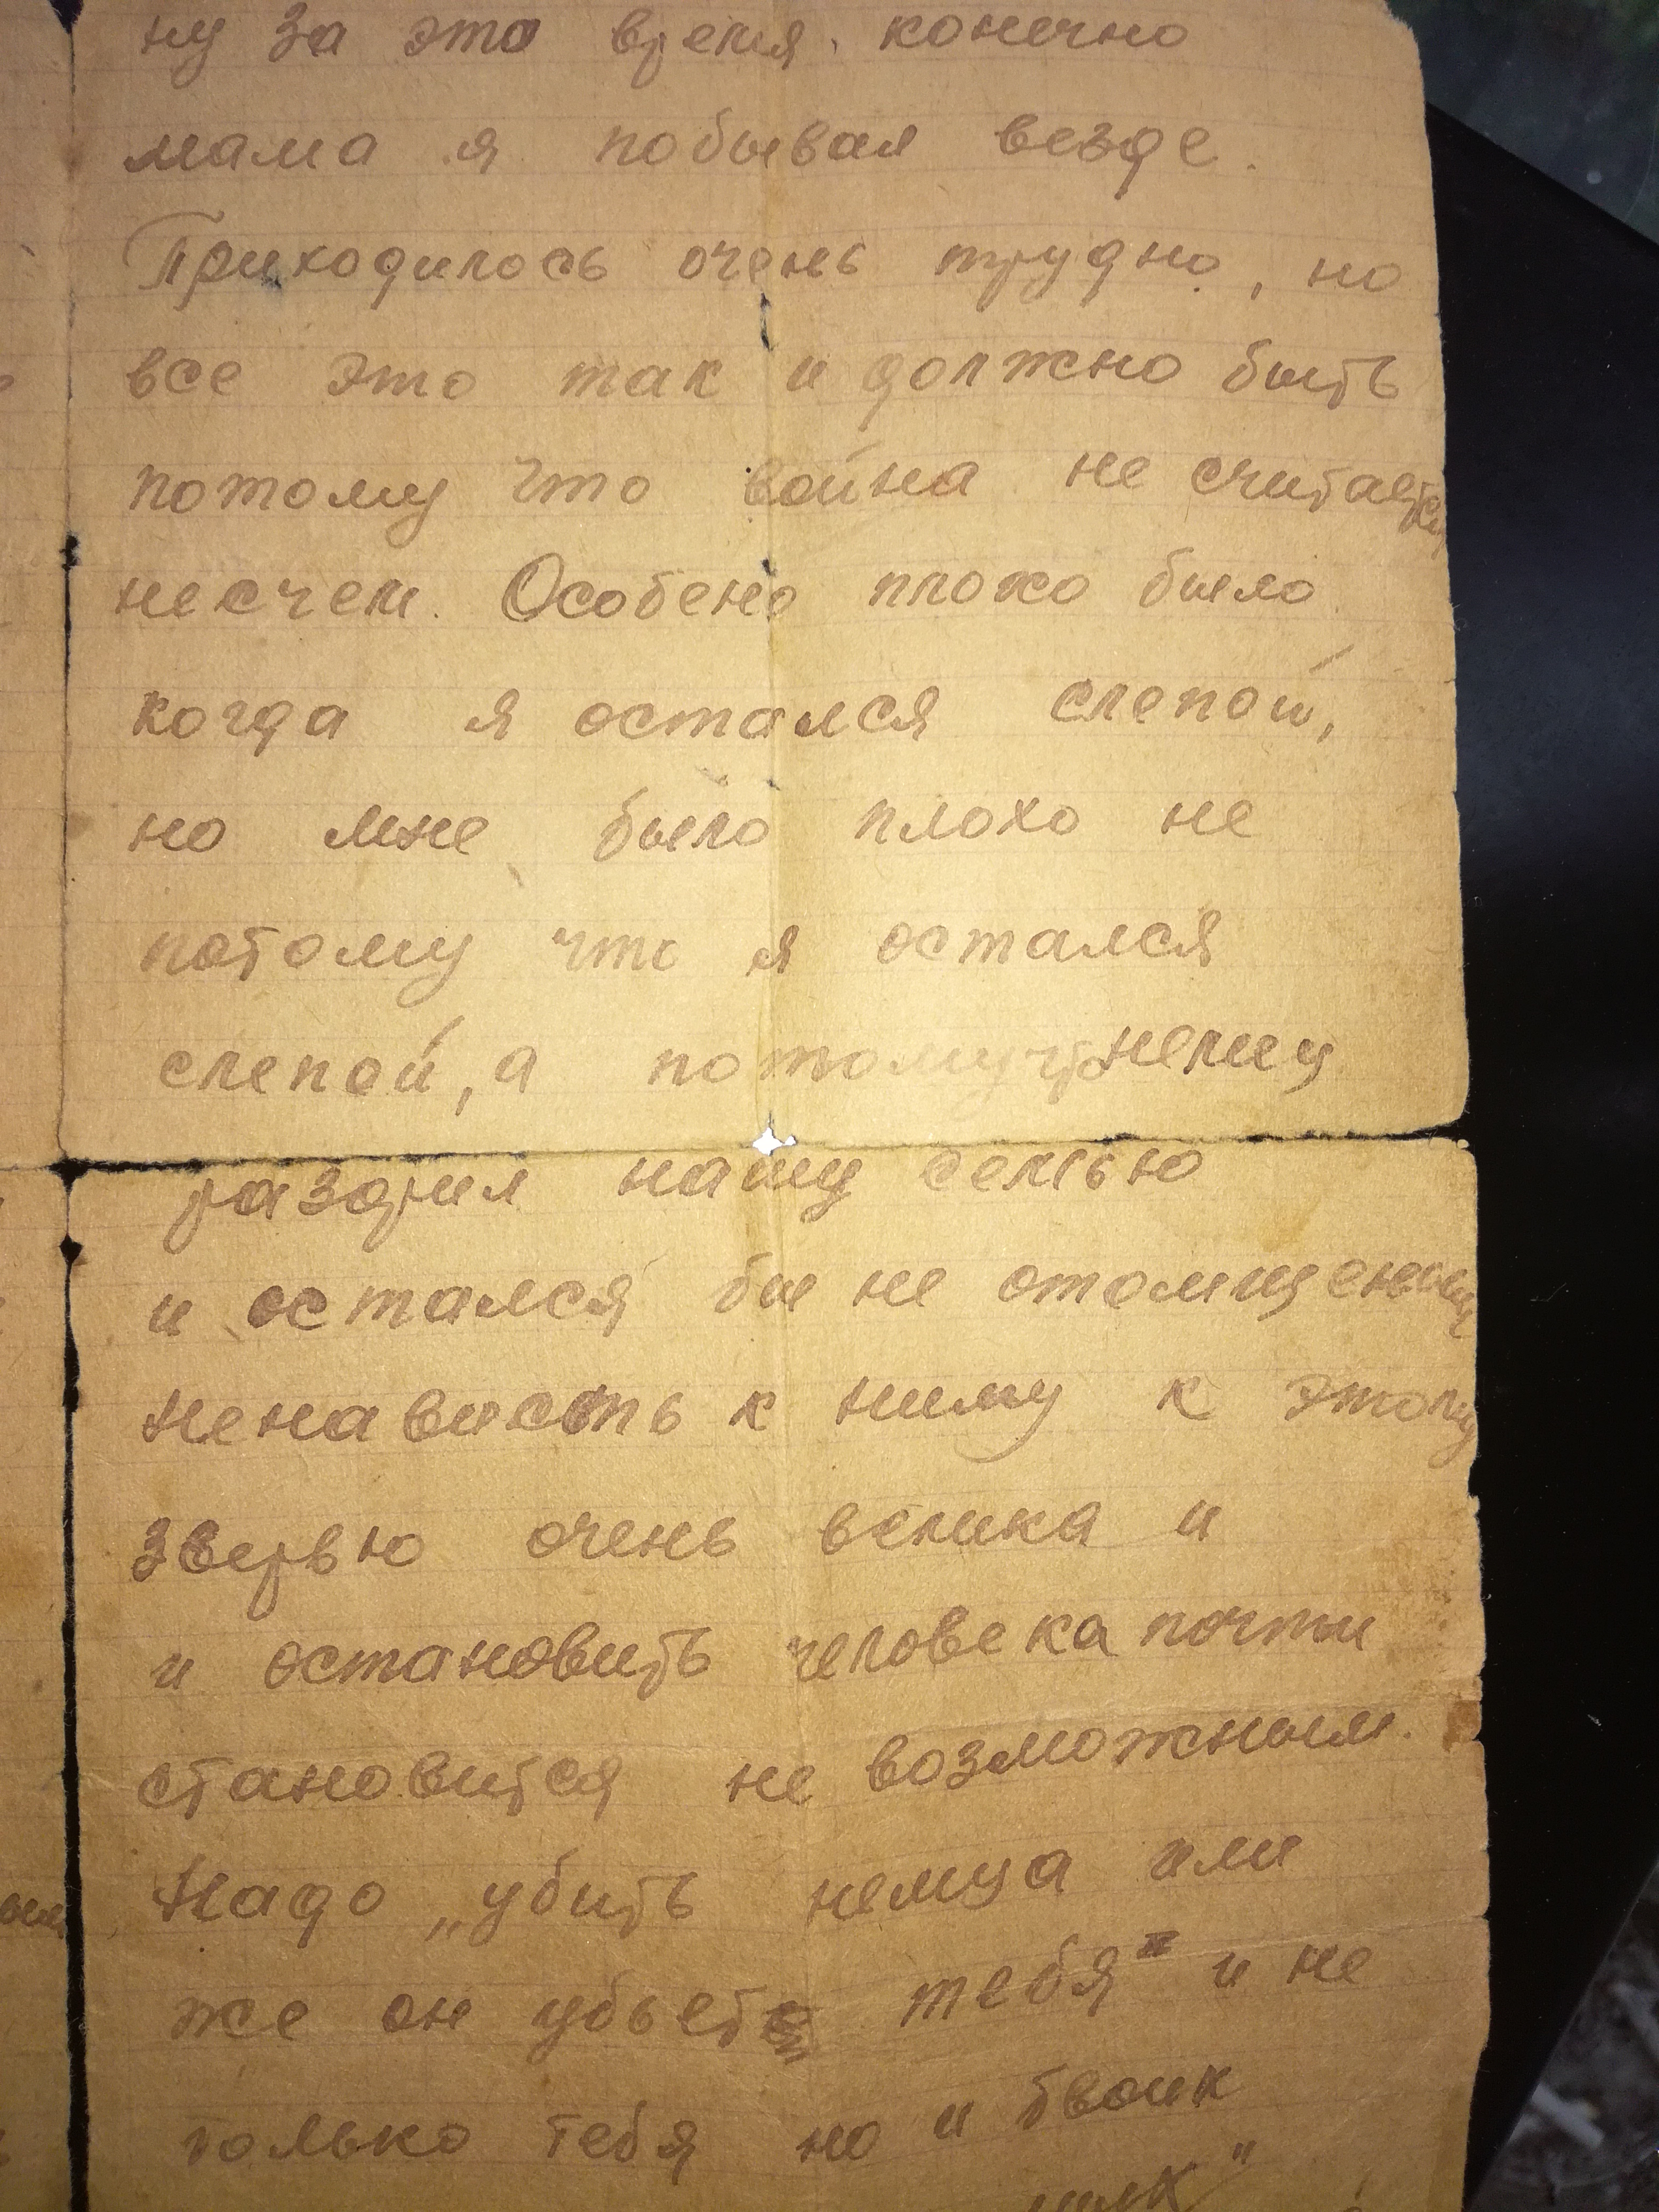 ну за это время. конечно
мама я побывал везде.
Приходилось очень трудно, но
все это так и должно быть
потому что война не считается
несчем. Особено плохо было
когда я остался слепой,
но мне было плохо не
потому что я остался
слепой, а потому что немец
раззорил нашу семью
и остался бы не отомщеным
Ненависть к ниму к этому
зверью очень велика и
и остановить человека почти
становится не возможным.
Надо „убить немца или
же он убьет тебя" и не
только тебя но и твоих